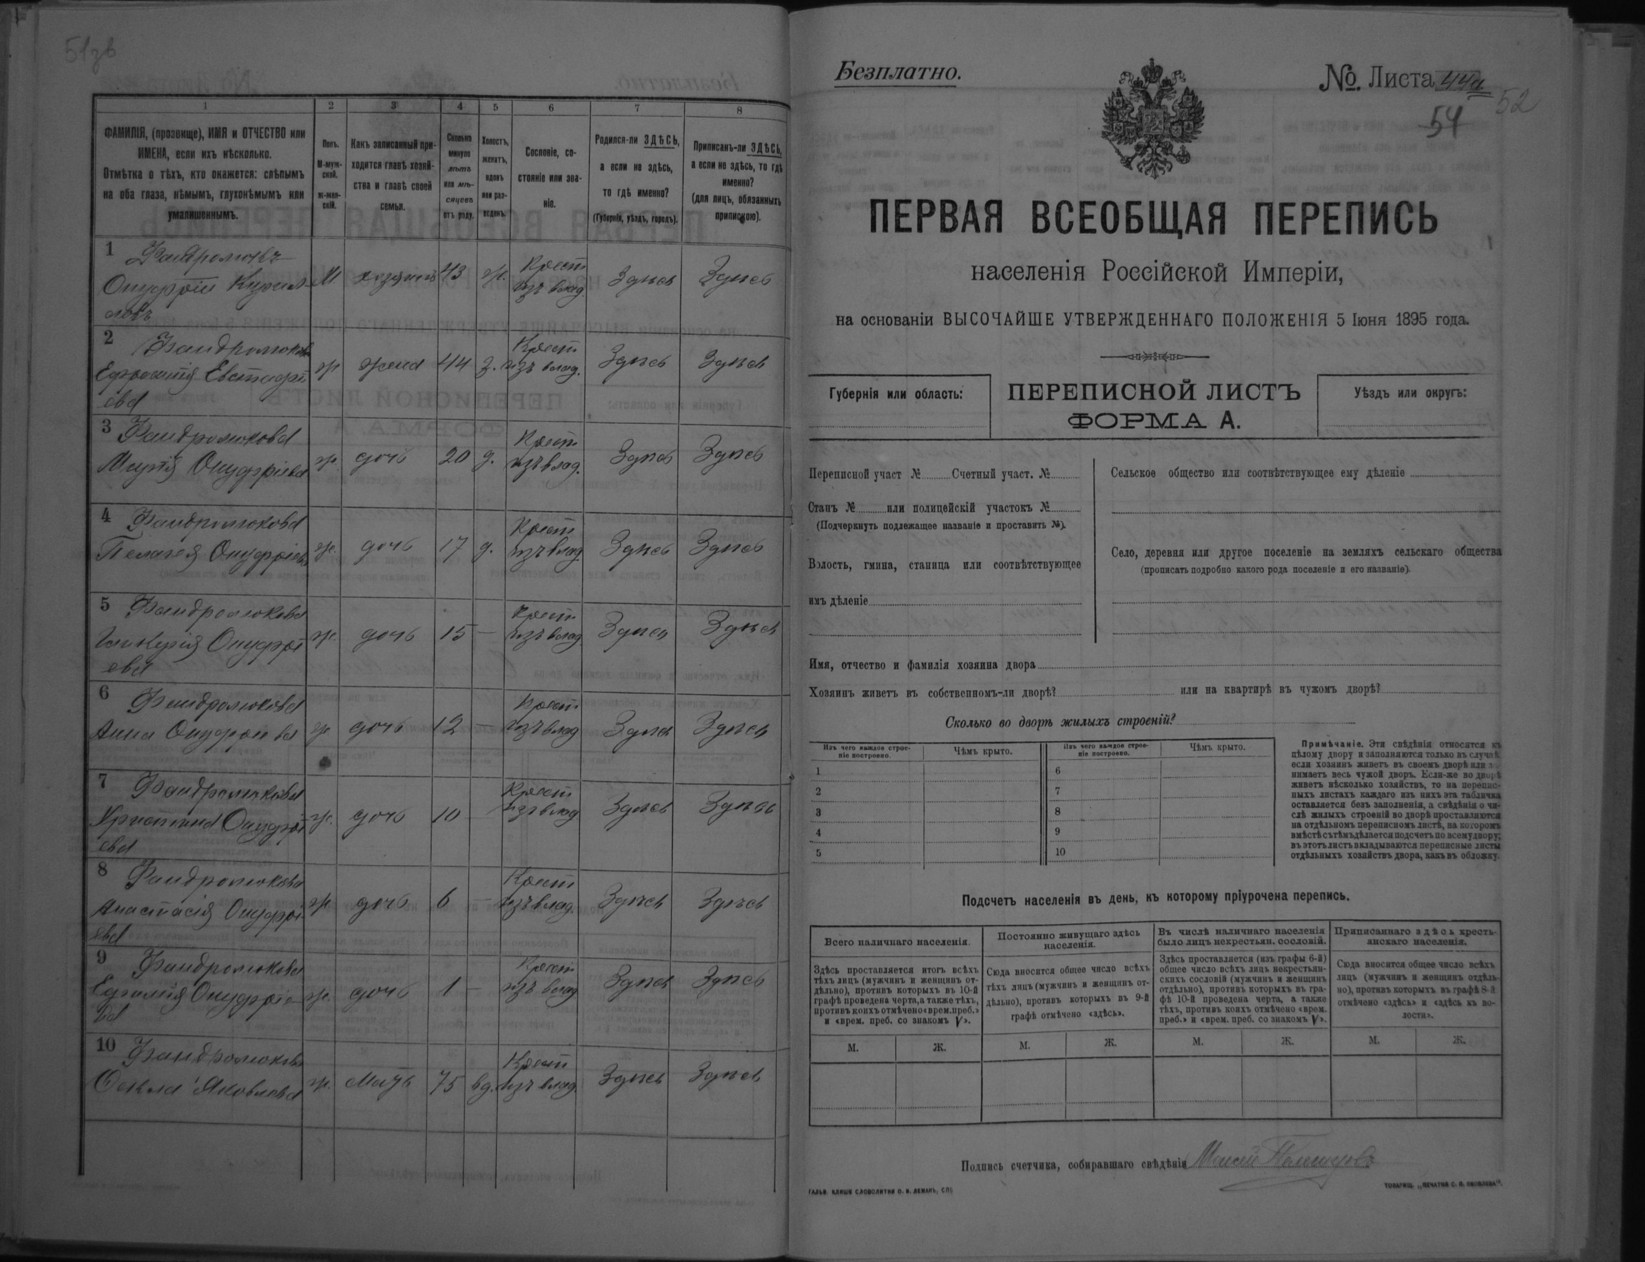 51зв
1
2
3
4
5
6
7
8
ФАМИЛІЯ, (прозвище), ИМЯ и ОТЧЕСТВО или
ИМЕНА, если ихъ нѣсколько.
Отмѣтка о тѣхъ, кто окажется: слѣпымъ
на оба глаза, нѣмымъ, глухонѣмымъ или
умалишеннымъ.
Полъ.
М-муж-
ской.
ж-жен-
скій.
Какъ записанный при-
ходится главѣ хозяй-
ства и главѣ своей
семьи.
Сколько
минуло
лѣтъ
или мѣ-
сяцевъ
отъ роду.
Холостъ,
женатъ,
вдовъ
или раз-
веденъ.
Сословіе, со-
стояніе или зва-
ніе.
Родился-ли ЗДѢСЬ,
а если не здѣсь,
то гдѣ именно?
(Губернія, уѣздъ, городъ).
Приписанъ-ли ЗДѢСЬ,
а если не здѣсь, то гдѣ
именно?
(для лицъ, обязанныхъ
припискою).
1
Онуфрій Кирил
ловъ
М хозяинъ 43 ж. Крест. изъ влад. Здѣсь Здѣсь
2 Фандролюкова
Евфимія Евстафі
ева
ж жена 44 з. Крест. изъ влад. Здѣсь Здѣсь
3 Фандролюкова
Марія Онуфріева
ж. дочь 20 д. Крест. изъ влад. Здѣсь Здѣсь
4 Фандролюкова
Пелагея Онуфріев
ж. дочь 17 д. Крест. изъ влад. Здѣсь Здѣсь
5 Фандролюкова
Гликерія Онуфрі
ева
ж. дочь 15 — Крест. изъ влад. Здѣсь Здѣсь
6 Фандролюкова
Анна Онуфріева
ж дочь 12 — Крест. изъ влад. Здѣсь Здѣсь
7 Фандролюкова
Христина Онуфрі
ева
ж. дочь 10 — Крест. изъ влад. Здѣсь Здѣсь
8 Фандролюкова
Анастасія Онуфрі
ева
ж. дочь 6 — Крест. изъ влад. Здѣсь Здѣсь
9 Фандролюкова
Онуфріе
ва
ж. дочь 1 — Крест. изъ влад. Здѣсь Здѣсь
10 Фандролюкова
Яковлева
ж. мать 75 вд. Крест. изъ влад. Здѣсь Здѣсь
Безплатно.
№ Листа 44а
54
52
ПЕРВАЯ ВСЕОБЩАЯ ПЕРЕПИСЬ
населенія Россійской Имперіи,
на основаніи ВЫСОЧАЙШЕ УТВЕРЖДЕННАГО ПОЛОЖЕНІЯ 5 Іюня 1895 года.
Губернія или область:
ПЕРЕПИСНОЙ ЛИСТЪ
ФОРМА А.
Уѣздъ или округъ:
Переписной участ № Счетный участ. №
Станъ № или полицейскій участокъ №
(Подчеркнуть подлежащее названіе и проставить №).
Волость, гмина, станица или соотвѣтствующее
имъ дѣленіе
Сельское общество или соотвѣтствующее ему дѣленіе
Село, деревня или другое поселеніе на земляхъ сельскаго общества
(прописать подробно какого рода поселеніе и его названіе).
Имя, отчество и фамилія хозяина двора
Хозяинъ живетъ въ собственномъ-ли дворѣ? или на квартирѣ въ чужомъ дворѣ?
Сколько во дворѣ жилыхъ строеній?
Изъ чего каждое строе-
ніе построено.
Чѣмъ крыто.
Изъ чего каждое строе-
ніе построено.
Чѣмъ крыто.
1
2
3
4
5
6
7
8
9
10
Примѣчаніе. Эти свѣдѣнія относятся къ
цѣлому двору и заполняются только въ случаѣ,
если хозяинъ живетъ въ своемъ дворѣ или за-
нимаетъ весь чужой дворъ. Если-же во дворѣ
живетъ нѣсколько хозяйствъ, то на перепис-
ныхъ листахъ каждаго изъ нихъ эта табличка
оставляется безъ заполненія, а свѣдѣнія о чи-
слѣ жилыхъ строеній во дворѣ проставляются
на отдѣльномъ переписномъ листѣ, на которомъ
вмѣстѣ съ тѣмъ дѣлается подсчетъ по всему двору;
въ этотъ листъ вкладываются переписные листы
отдѣльныхъ хозяйствъ двора, какъ въ обложку.
Подсчетъ населенія въ день, къ которому пріурочена перепись.
Всего наличнаго населенія.
Постоянно живущаго здѣсь
населенія.
Въ числѣ наличнаго населенія
было лицъ некрестьян. сословій.
Приписаннаго здѣсь кресть-
янскаго населенія.
Здѣсь проставляется итогъ всѣхъ
тѣхъ лицъ (мужчинъ и женщинъ от-
дѣльно), противъ которыхъ въ 10-й
графѣ проведена черта, а также тѣхъ,
противъ коихъ отмѣчено «врем. преб.»
и «врем. преб. со знакомъ V».
Сюда вносится общее число всѣхъ
тѣхъ лицъ (мужчинъ и женщинъ от-
дѣльно), противъ которыхъ въ 9-й
графѣ отмѣчено «здѣсь».
Здѣсь проставляется (изъ графы 6-й)
общее число всѣхъ лицъ некрестьян-
скихъ сословій (мужчинъ и женщинъ
отдѣльно), противъ которыхъ въ гра-
фѣ 10-й проведена черта, а также
тѣхъ, противъ коихъ отмѣчено «врем.
преб.» и «врем. преб. со знакомъ V».
Сюда вносится общее число всѣхъ
лицъ (мужчинъ и женщинъ отдѣль-
но), противъ которыхъ въ графѣ 8-й
отмѣчено «здѣсь» и «здѣсь въ во-
лости».
М.
Ж.
М.
Ж.
М.
Ж.
М.
Ж.
Подпись счетчика, собиравшаго свѣдѣнія